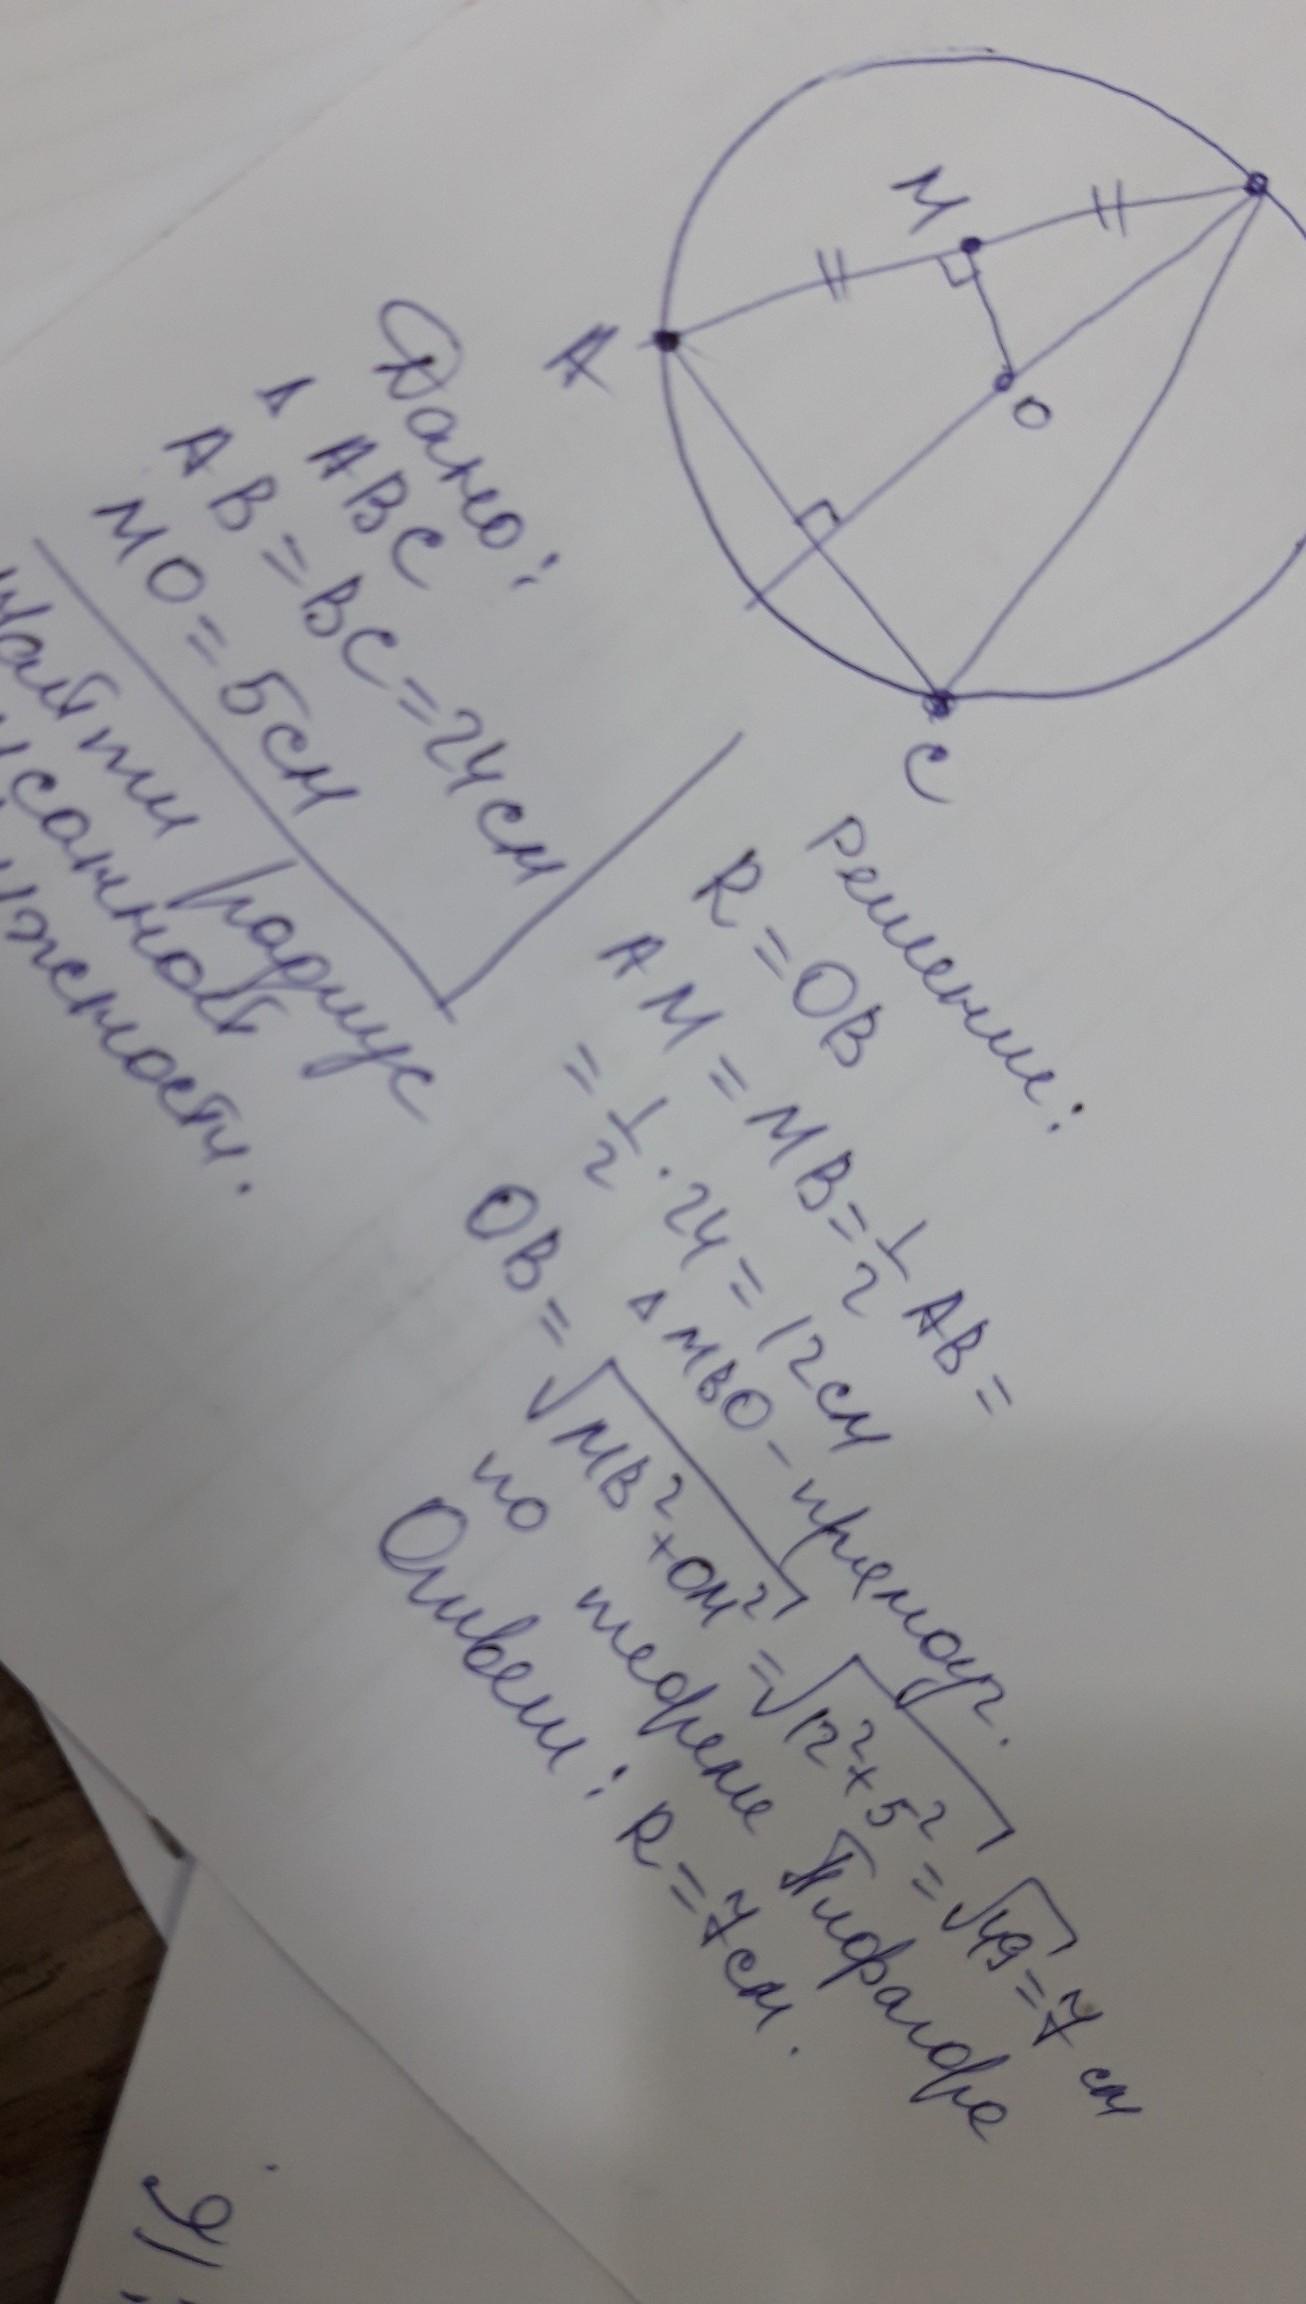 M
A
O
C
Дано:
Δ ABC
AB = BC = 24 см
MO = 5 см
Найти радиус
Решение:
R = OB
AM = MB = 1/2 AB =
= 1/2 · 24 = 12 см
Δ MBO - прямоуг.
OB = √MB² + OM² = √12² + 5² = √49 = 7 см
по теореме Пифагора
Ответ: R = 7 см.